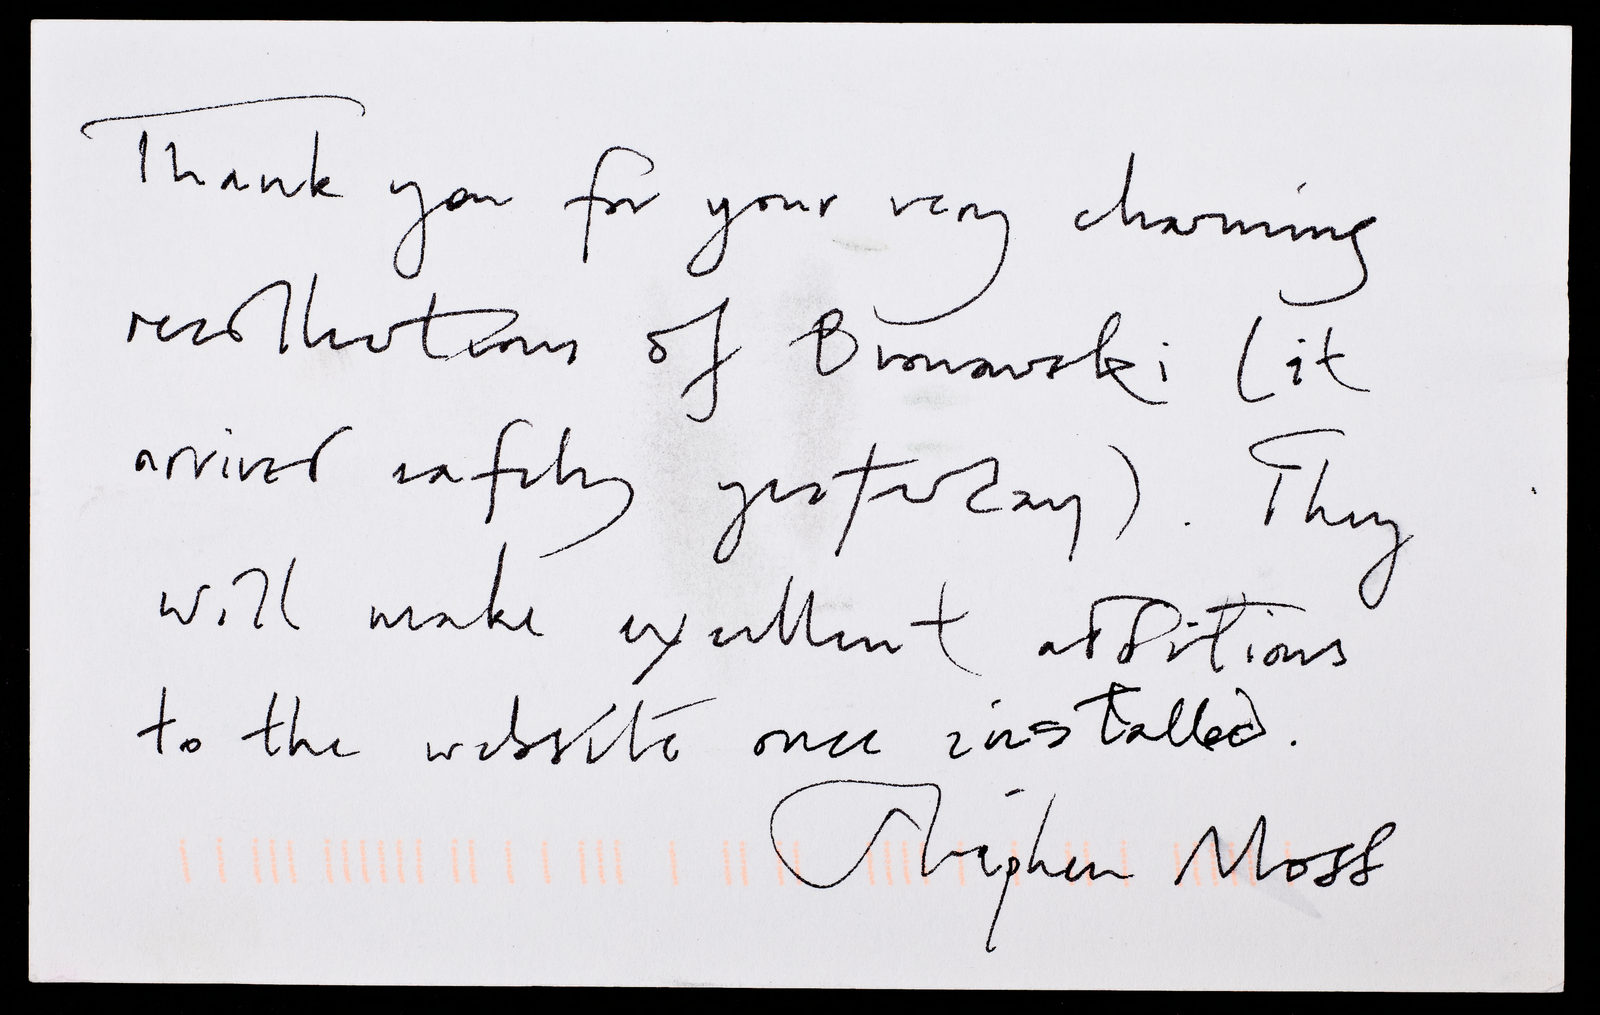 Thank you for your very charming
recollections of Bronowski (it
arrived safely yesterday). They
will make excellent additions
to the website once installed.
Stephen Moss